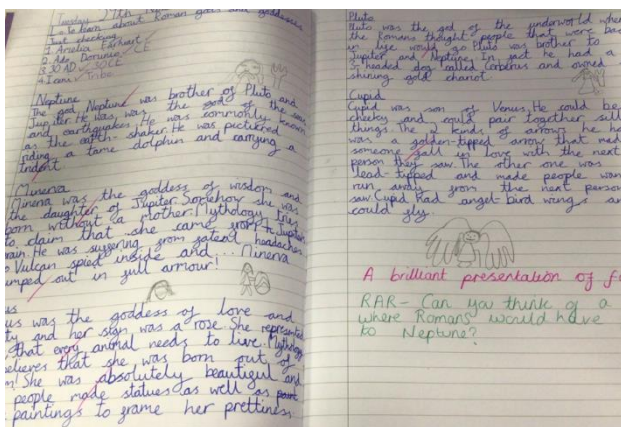 Tuesday 27th
Lo To learn about Roman gods and goddesses
Just checking
1. Amelia Earhart
2. Ada
3. 30 AD
4. Iceni Tribe
Neptune
The god Neptune was brother of Pluto and
Jupiter. He was, was the god of the sea
and earthquakes. He was commonly known
as the earth-shaker. He was pictured
riding a tame dolphin and carrying a
trident
Minerva
Minerva was the goddess of wisdom and
the daughter of Jupiter. Somehow she was
born without a mother. Mythology tries
to claim that she came from Jupiters
rain. He was suffering from fateal headaches
Vulcan spied inside and ... Minerva
umped out in full armour!
us
us was the goddess of love and
ty and her sign was a rose. She represented
that every animal needs to live. Mythology
believes that she was born out of
She was absolutely beautiful and
people made statues as well as
paintings to frame her prettiness
Pluto
Pluto was the god of the underworld wher
the Romans thought people that were bad
in life would go. Pluto was brother to
Jupiter and Neptune. In fact he had a
3-headed dog called Cerberus and owned
shining gold chariot
Cupid
Cupid was son of Venus. He could be
cheeky and could pair together sill
things. The 2 kinds of arrows he ha
was a golden-tipped arrow that mad
someone fall in love with the next
person they saw. The other one was
lead-tipped and made people wan
run away from the next person
saw. Cupid had angel-bird wings an
could fly.
A brilliant presentation of f
RAR- Can you think of a
where Romans would have
to Neptune?